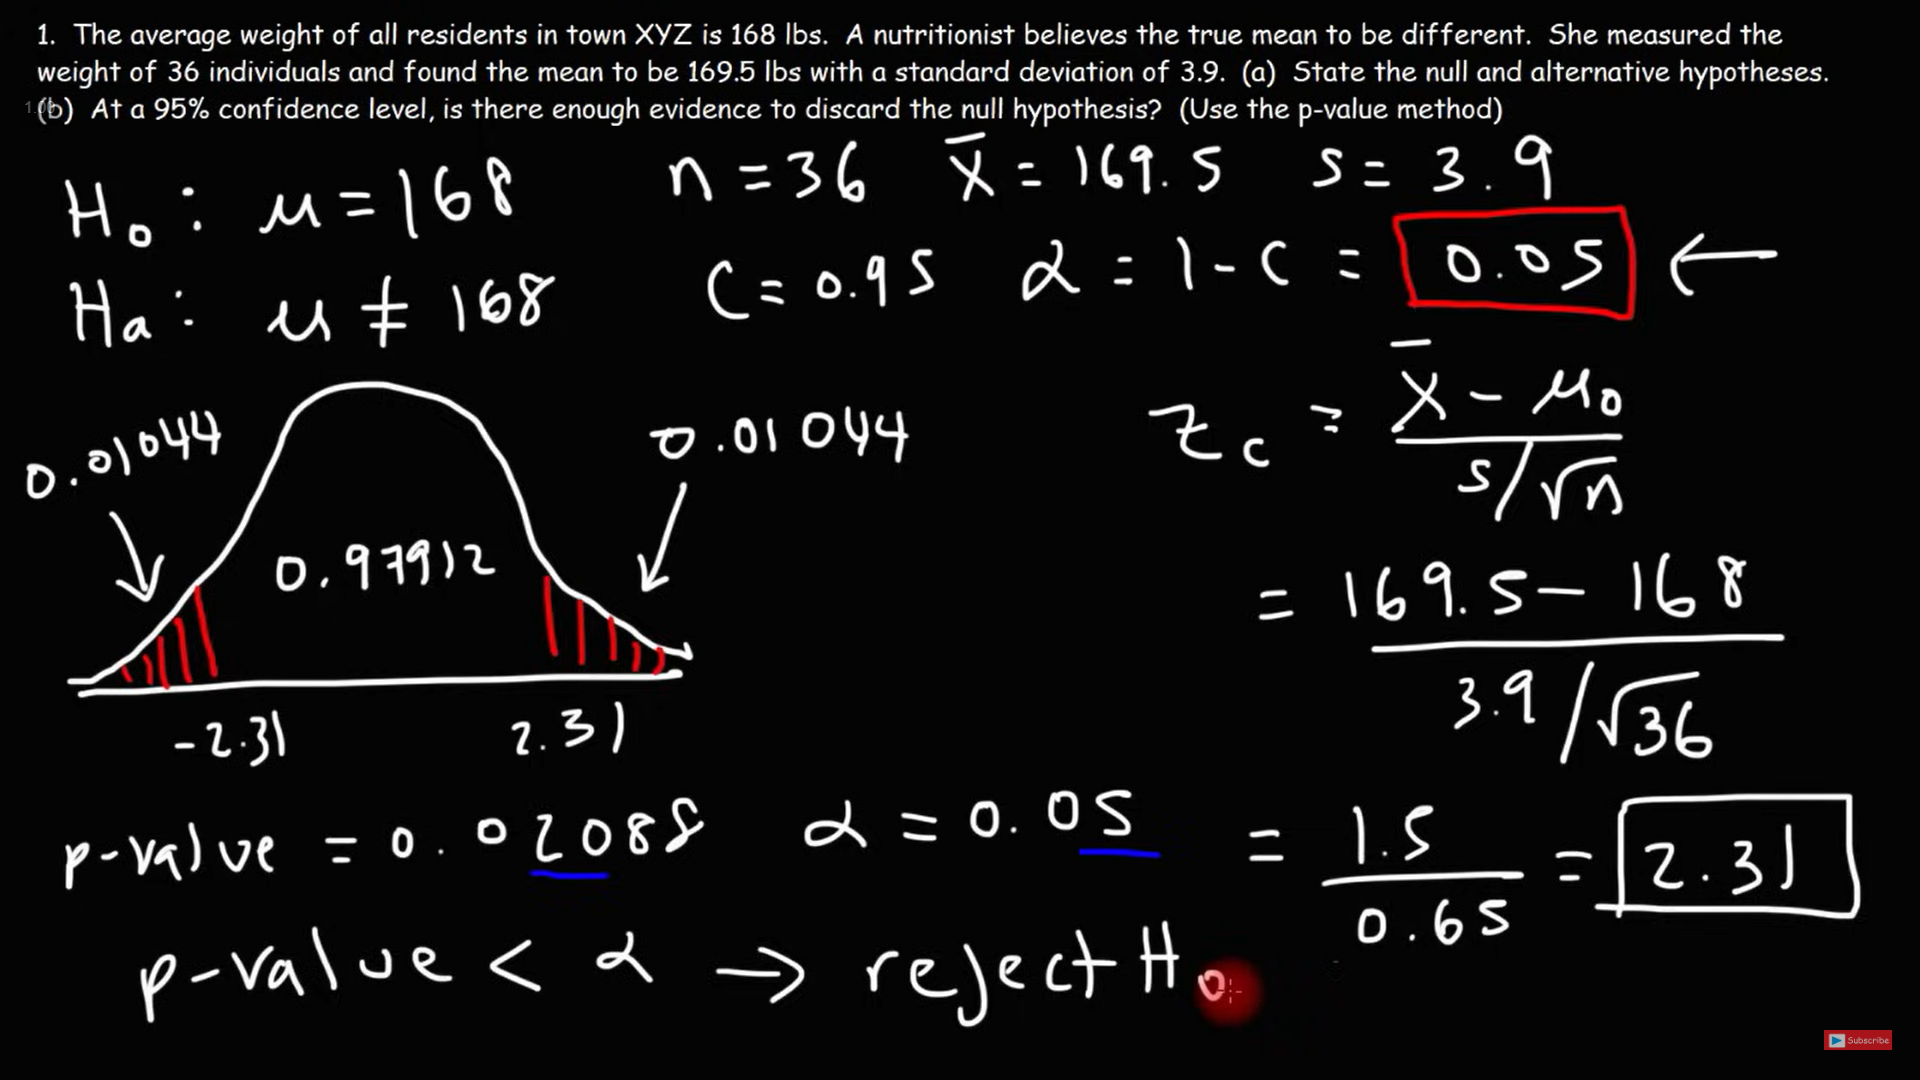 1. The average weight of all residents in town XYZ is 168 lbs. A nutritionist believes the true mean to be different. She measured the
weight of 36 individuals and found the mean to be 169.5 lbs with a standard deviation of 3.9. (a) State the null and alternative hypotheses.
(b) At a 95% confidence level, is there enough evidence to discard the null hypothesis? (Use the p-value method)
H₀: μ = 168
n = 36 x̄ = 169.5 s = 3.9
Hₐ: μ ≠ 168
C = 0.95 α = 1 - C = 0.05 ←
0.01044
0.97912
0.01044
-2.31 2.31
Z_c = (x̄ - μ₀) / (s/√n)
= (169.5 - 168) / (3.9/√36)
= 1.5 / 0.65 = 2.31
p-value = 0.02088 α = 0.05
p-value < α → reject H₀
Subscribe